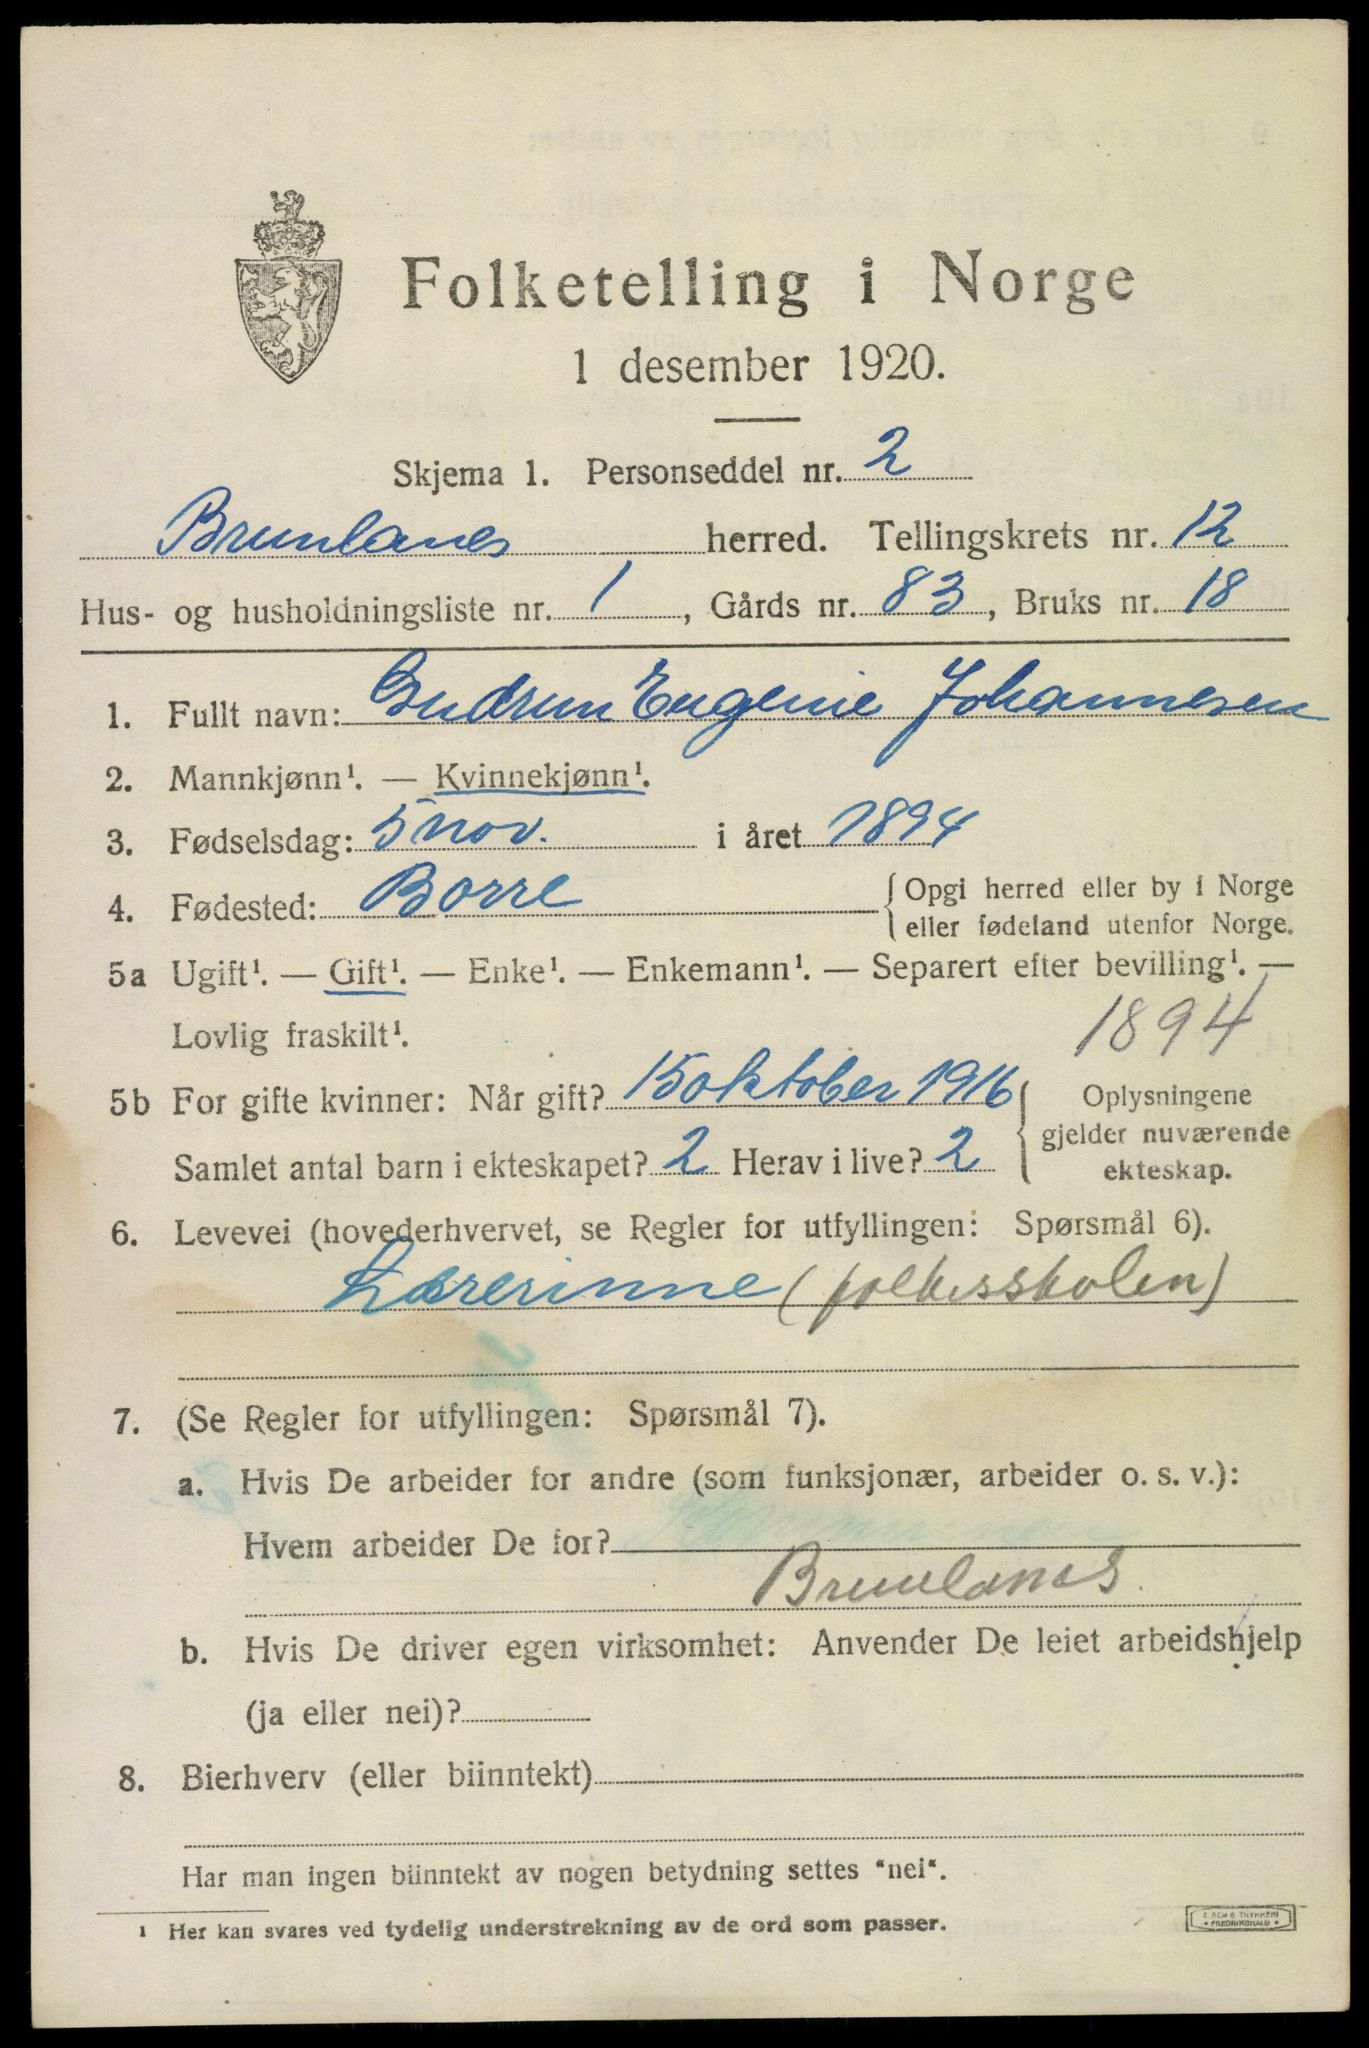 Folketelling i Norge
1 desember 1920.
Skjema 1. Personseddel nr. 2
Brunlanes herred. Tellingskrets nr. 12
Hus- og husholdningsliste nr. 1, Gårds nr. 83, Bruks nr. 18
1. Fullt navn: Gudrun Eugenie Johannesen
2. Mannkjønn¹. — Kvinnekjønn¹.
3. Fødselsdag: 5 nov. i året 1894
4. Fødested: Borre { Opgi herred eller by i Norge
eller fødeland utenfor Norge.
5a Ugift¹. — Gift¹. — Enke¹. — Enkemann¹. — Separert efter bevilling¹. —
Lovlig fraskilt¹. 1894
5b For gifte kvinner: Når gift? 15 oktober 1916
Samlet antal barn i ekteskapet? 2 Herav i live? 2
{ Oplysningene
gjelder nuværende
ekteskap.
6. Levevei (hovederhvervet, se Regler for utfyllingen: Spørsmål 6).
Lærerinne (folkesskolen)
7. (Se Regler for utfyllingen: Spørsmål 7).
a. Hvis De arbeider for andre (som funksjonær, arbeider o. s. v.):
Hvem arbeider De for?
Brunlanes.
b. Hvis De driver egen virksomhet: Anvender De leiet arbeidshjelp
(ja eller nei)?
8. Bierhverv (eller biinntekt)
Har man ingen biinntekt av nogen betydning settes "nei".
¹ Her kan svares ved tydelig understrekning av de ord som passer.